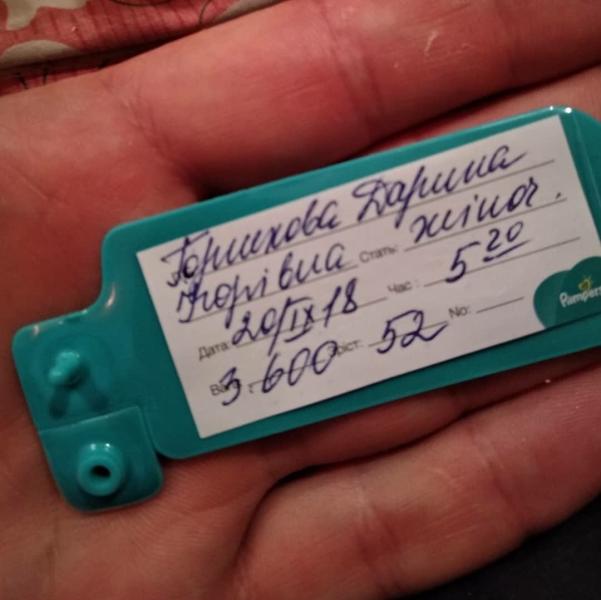 Горшкова Дарина
Ігорівна Стать: жіноч.
Дата 20/IX 18 Час: 5 20
Вага: 3600 Зріст: 52 No:
Pampers